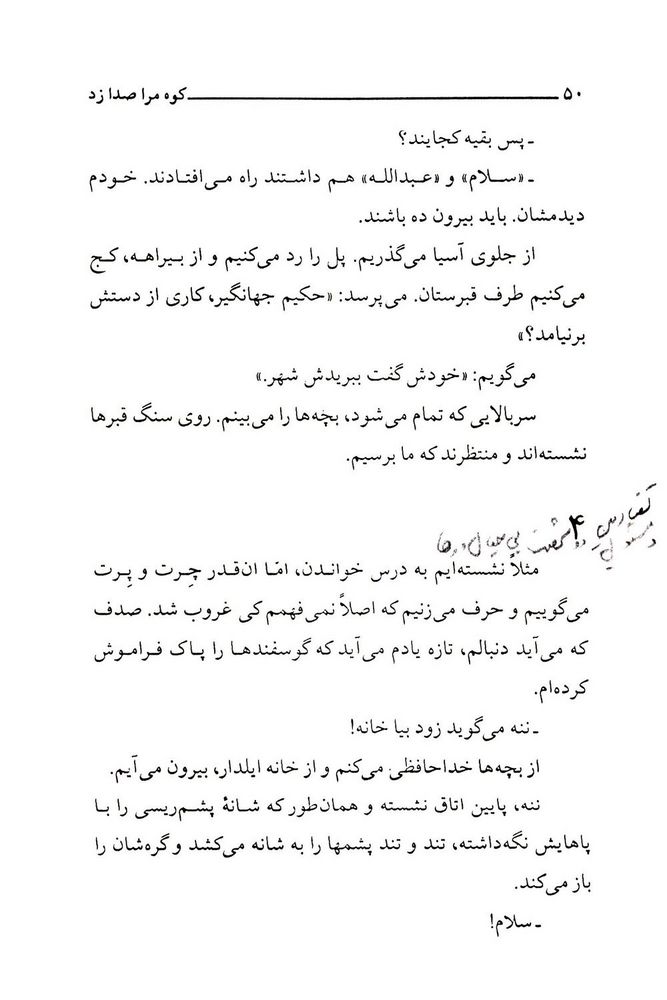 ۵۰ کوه مرا صدا زد
ـ پس بقیه کجایند؟
ـ «سلام» و «عبدالله» هم داشتند راه می‌افتادند. خودم
دیدمشان. باید بیرون ده باشند.
از جلوی آسیا می‌گذریم. پل را رد می‌کنیم و از بیراهه، کج
می‌کنیم طرف قبرستان. می‌پرسد: «حکیم جهانگیر، کاری از دستش
برنیامد؟»
می‌گویم: «خودش گفت ببریدش شهر.»
سربالایی که تمام می‌شود، بچه‌ها را می‌بینم. روی سنگ قبرها
نشسته‌اند و منتظرند که ما برسیم.
۴
مثلاً نشسته‌ایم به درس خواندن، امّا ان‌قدر چِرت و پِرت
می‌گوییم و حرف می‌زنیم که اصلاً نمی‌فهمم کی غروب شد. صدف
که می‌آید دنبالم، تازه یادم می‌آید که گوسفندها را پاک فراموش
کرده‌ام.
ـ ننه می‌گوید زود بیا خانه!
از بچه‌ها خداحافظی می‌کنم و از خانه ایلدار، بیرون می‌آیم.
ننه، پایین اتاق نشسته و همان‌طور که شانهٔ پشم‌ریسی را با
پاهایش نگه‌داشته، تند و تند پشمها را به شانه می‌کشد و گره‌شان را
باز می‌کند.
ـ سلام!